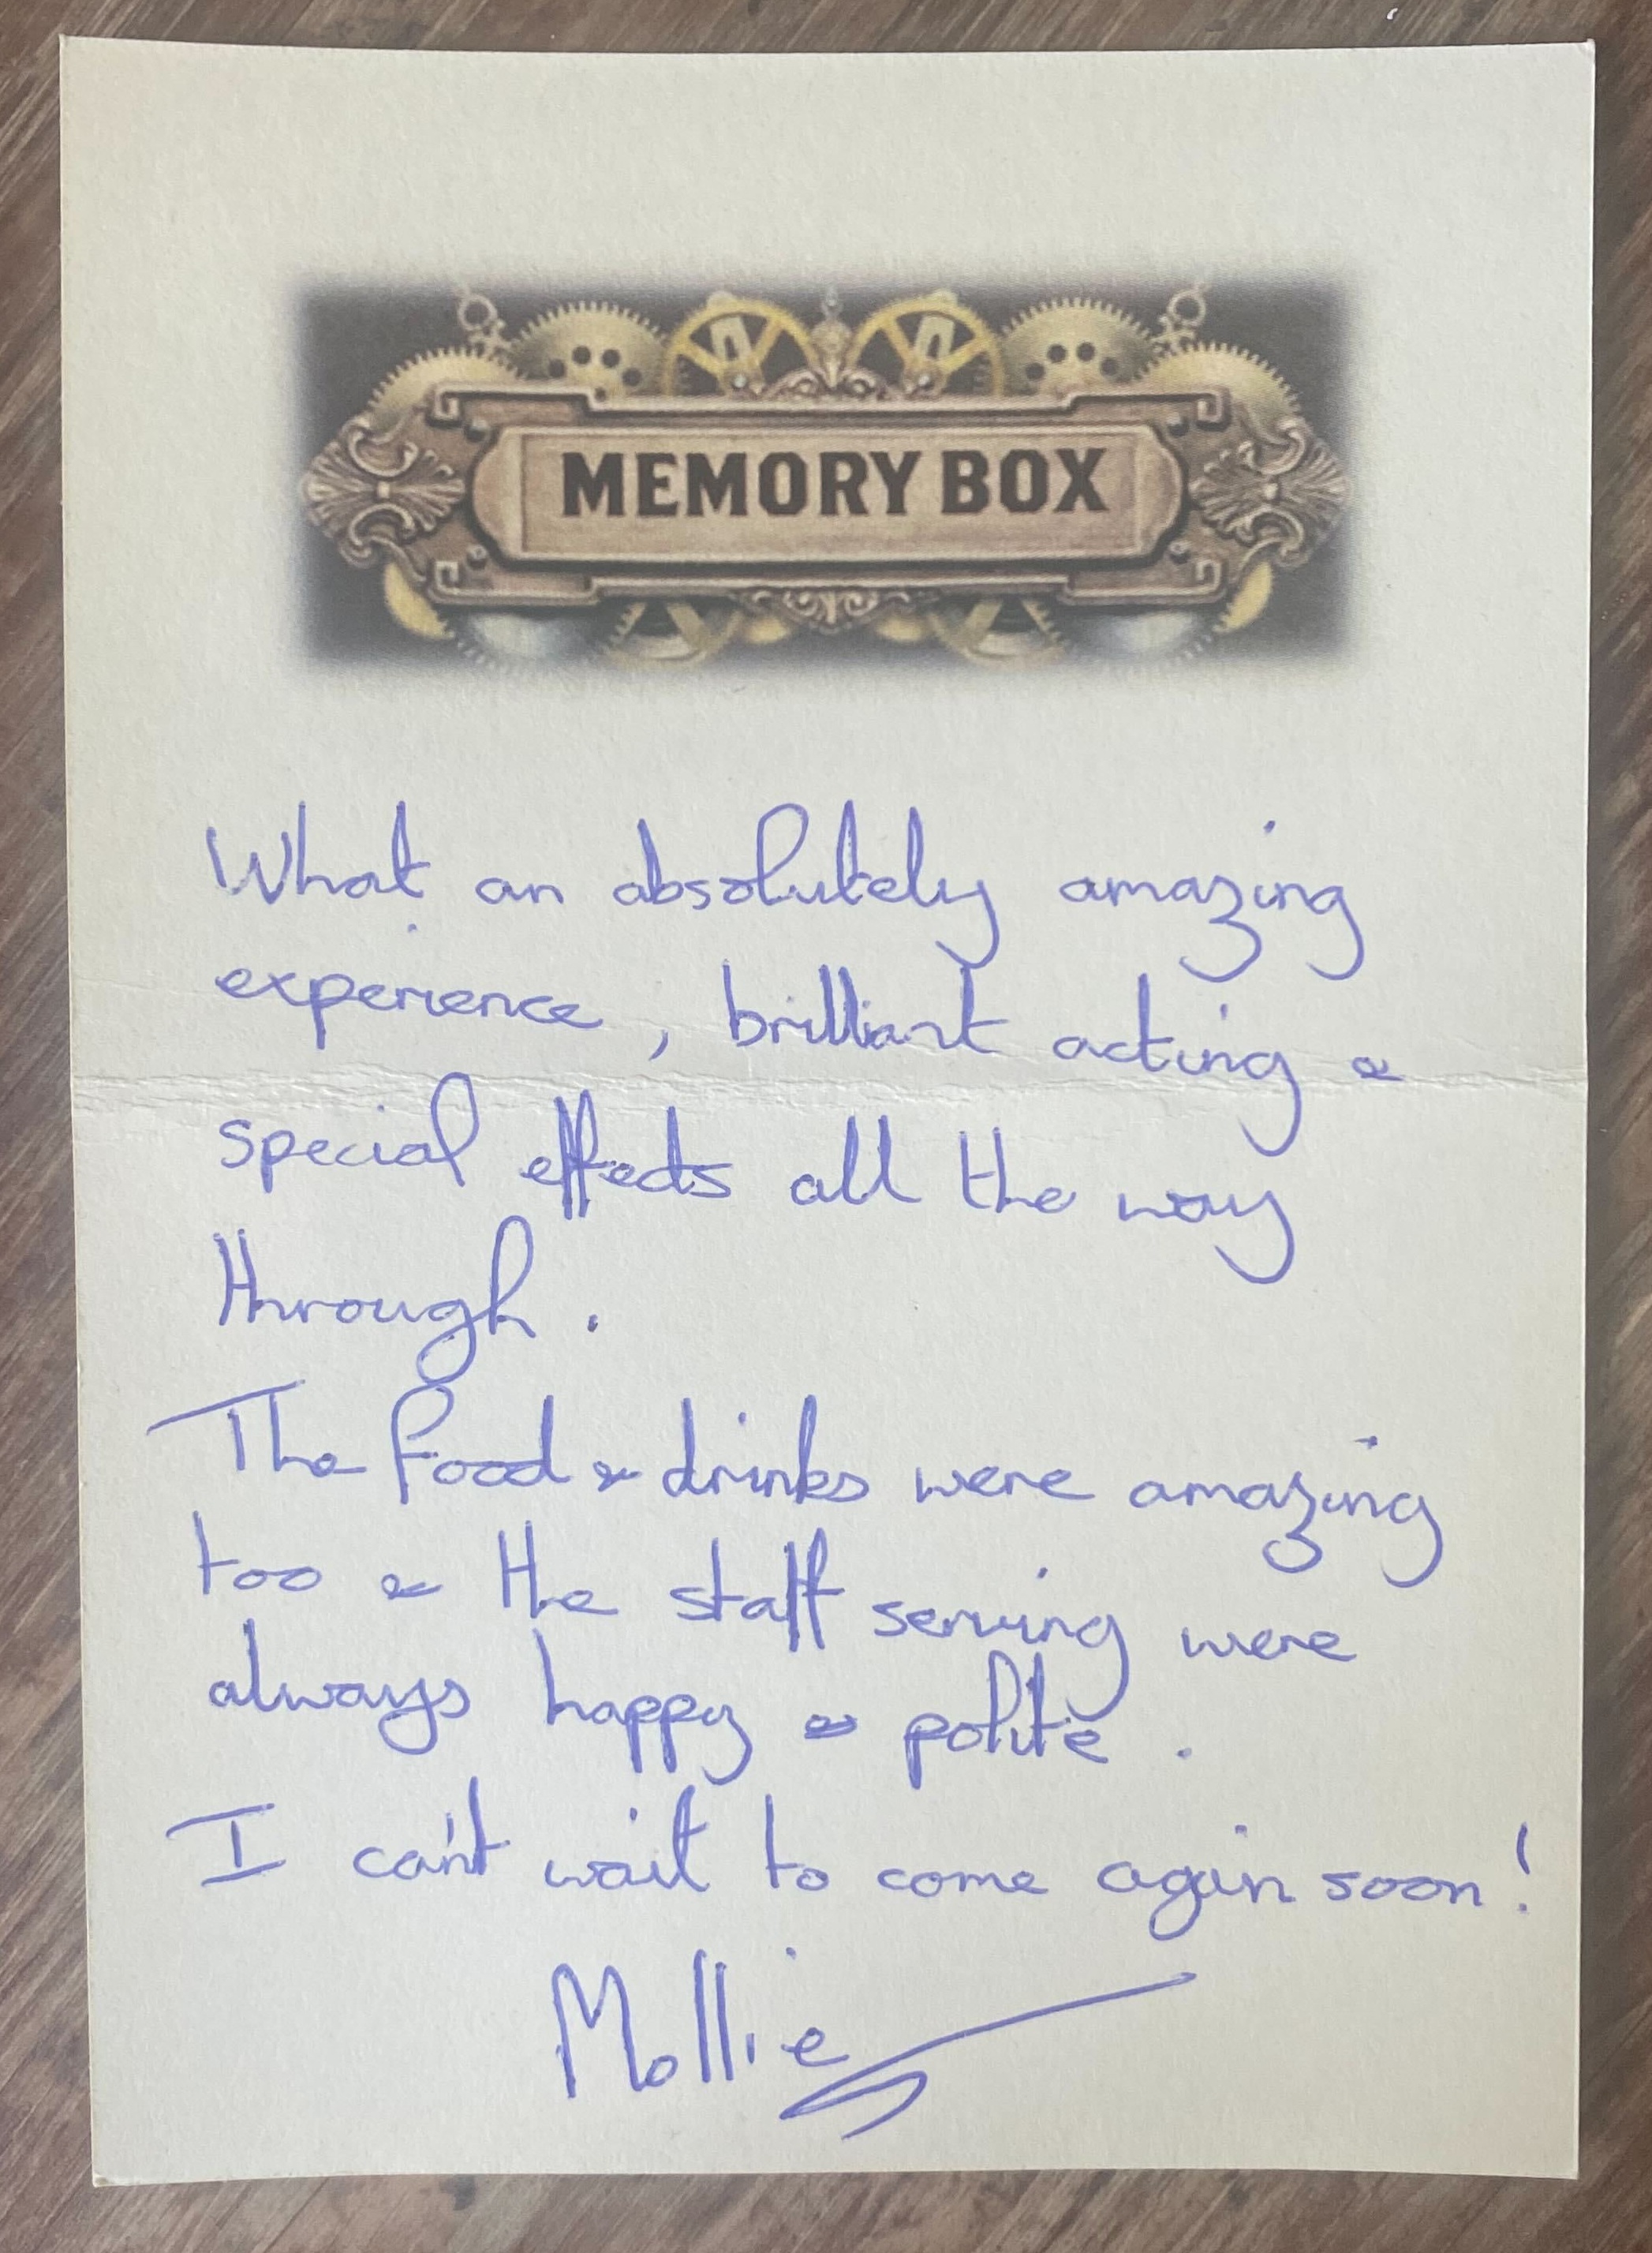 MEMORY BOX
What an absolutely amazing
experience, brilliant acting &
special effects all the way
through.
The food & drinks were amazing
too & the staff serving were
always happy & polite.
I can't wait to come again soon!
Mollie